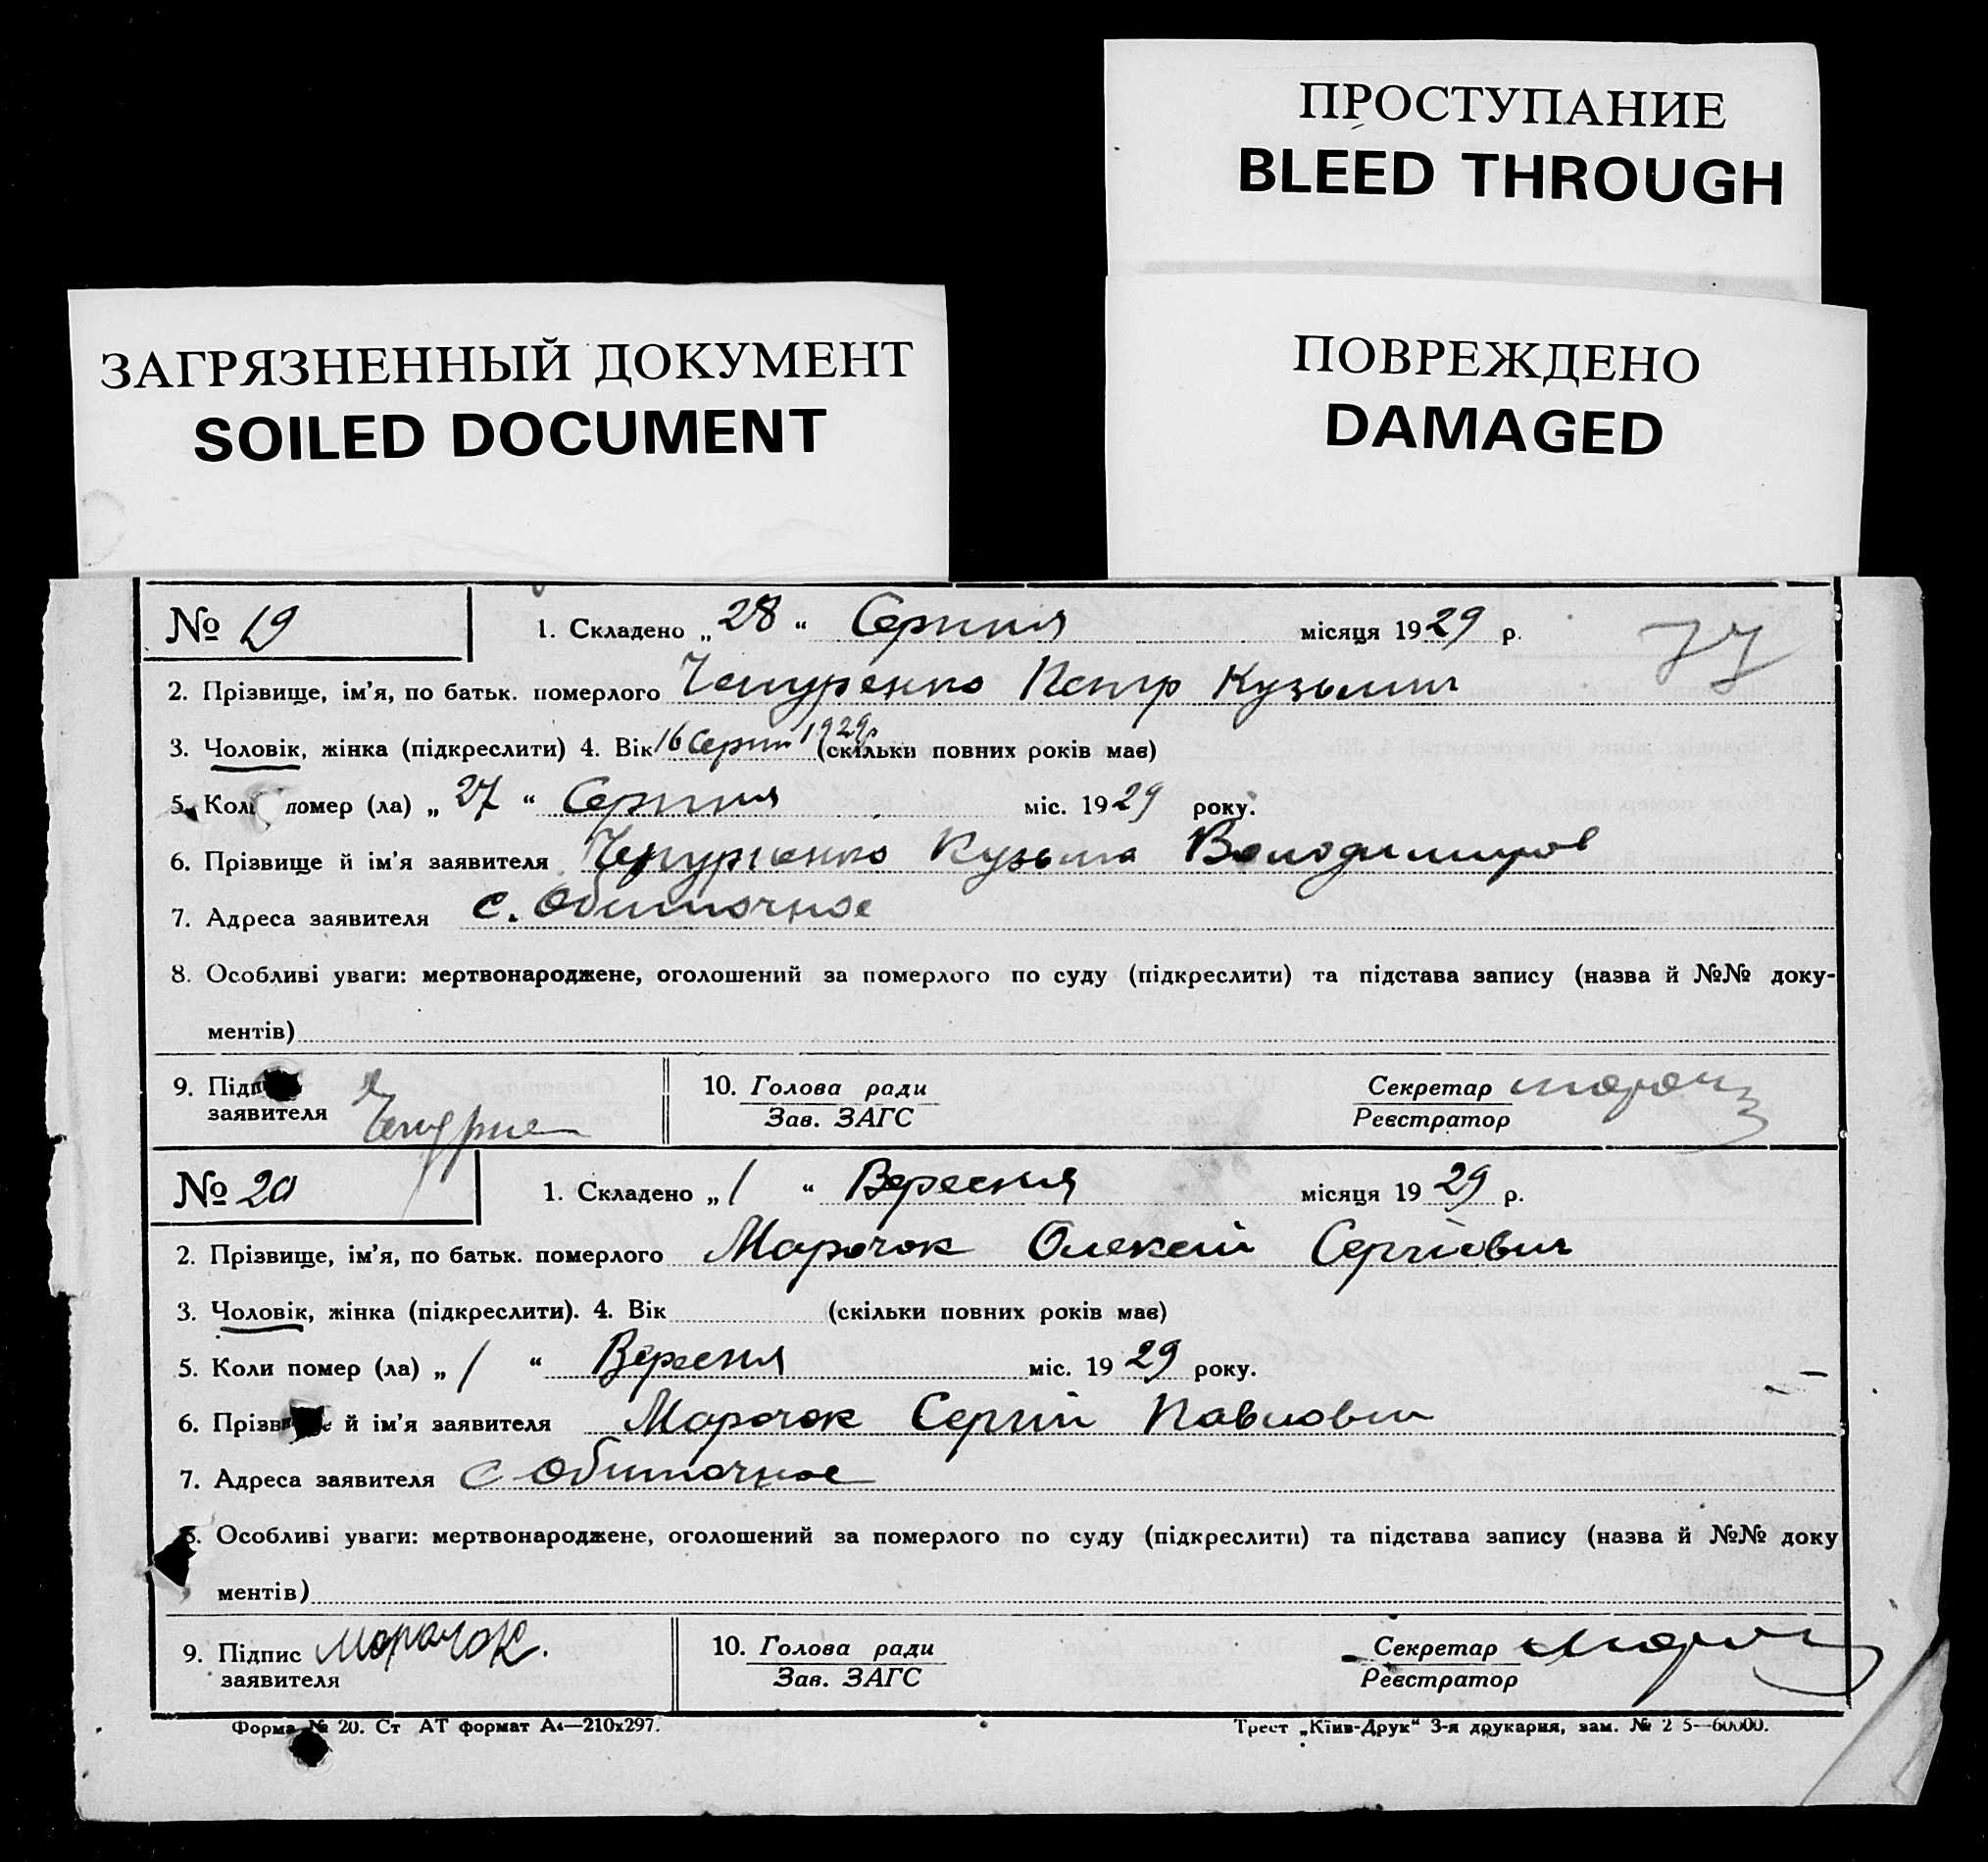 ПРОСТУПАНИЕ
BLEED THROUGH
ЗАГРЯЗНЕННЫЙ ДОКУМЕНТ
SOILED DOCUMENT
ПОВРЕЖДЕНО
DAMAGED
№ 19
1. Складено „ 28 “ Серпня місяця 1929 р.
77
2. Прізвище, ім'я, по батьк. померлого Чепуренко Петр Кузьмич
3. Чоловік, жінка (підкреслити) 4. Вік 16 Серпн 1929р (скільки повних років має)
5. Коли помер (ла) „ 27 “ Серпня міс. 1929 року.
6. Прізвище й ім'я заявителя Чепуренко Кузьма Володимиров
7. Адреса заявителя с. Обиточное
8. Особливі уваги: мертвонароджене, оголошений за померлого по суду (підкреслити) та підстава запису (назва й №№ доку-
ментів)
9. Підп
заявителя
10. Голова ради
Зав. ЗАГС
Секретар
Реєстратор
№ 20
1. Складено „ 1 “ Вересня місяця 1929 р.
2. Прізвище, ім'я, по батьк. померлого Марочок Олексій Сергієвич
3. Чоловік, жінка (підкреслити). 4. Вік (скільки повних років має)
5. Коли помер (ла) „ 1 “ Вересня міс. 1929 року.
6. Прізвище й ім'я заявителя Марочок Сергій Павлович
7. Адреса заявителя с Обиточное
8. Особливі уваги: мертвонароджене, оголошений за померлого по суду (підкреслити) та підстава запису (назва й №№ доку
ментів)
9. Підпис Марачок.
заявителя
10. Голова ради
Зав. ЗАГС
Секретар
Реєстратор
Форма № 20. Ст АТ формат А4—210х297.
Трест „Київ-Друк“ 3-я друкарня, зам. № 2 5—60000.